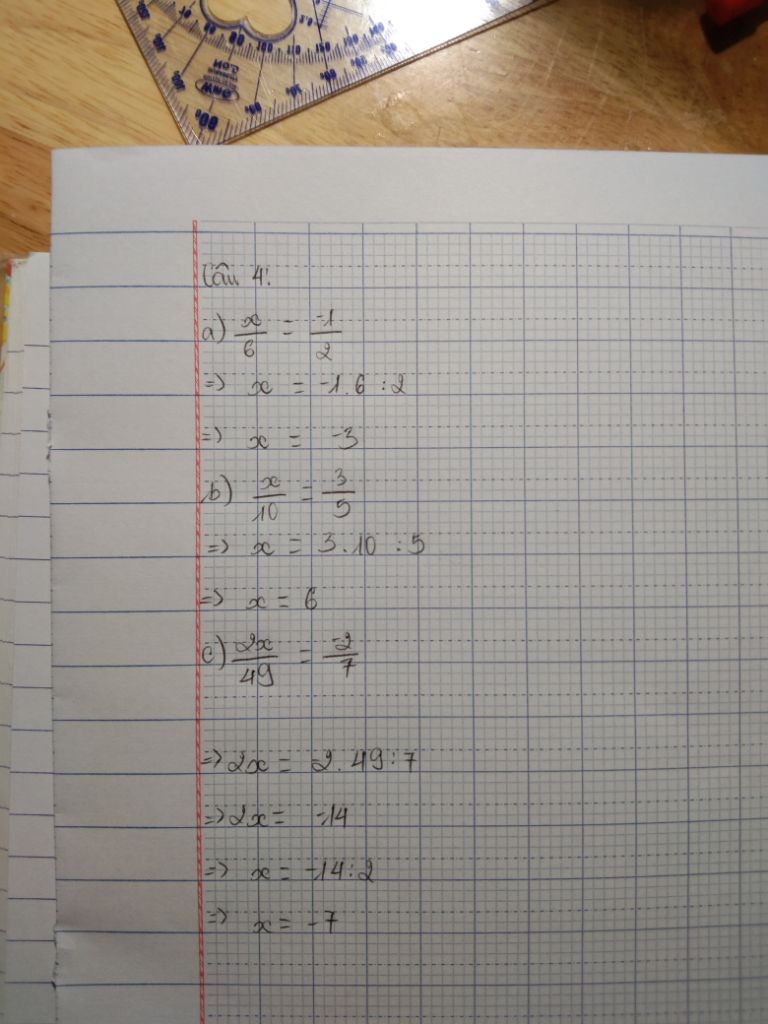 Câu 4:
a) x/6 = -1/2
=> x = -1.6 : 2
=> x = -3
b) x/10 = 3/5
=> x = 3.10 : 5
=> x = 6
c) 2x/49 = -2/7
=> 2x = 2.49:7
=> 2x = -14
=> x = -14:2
=> x = -7